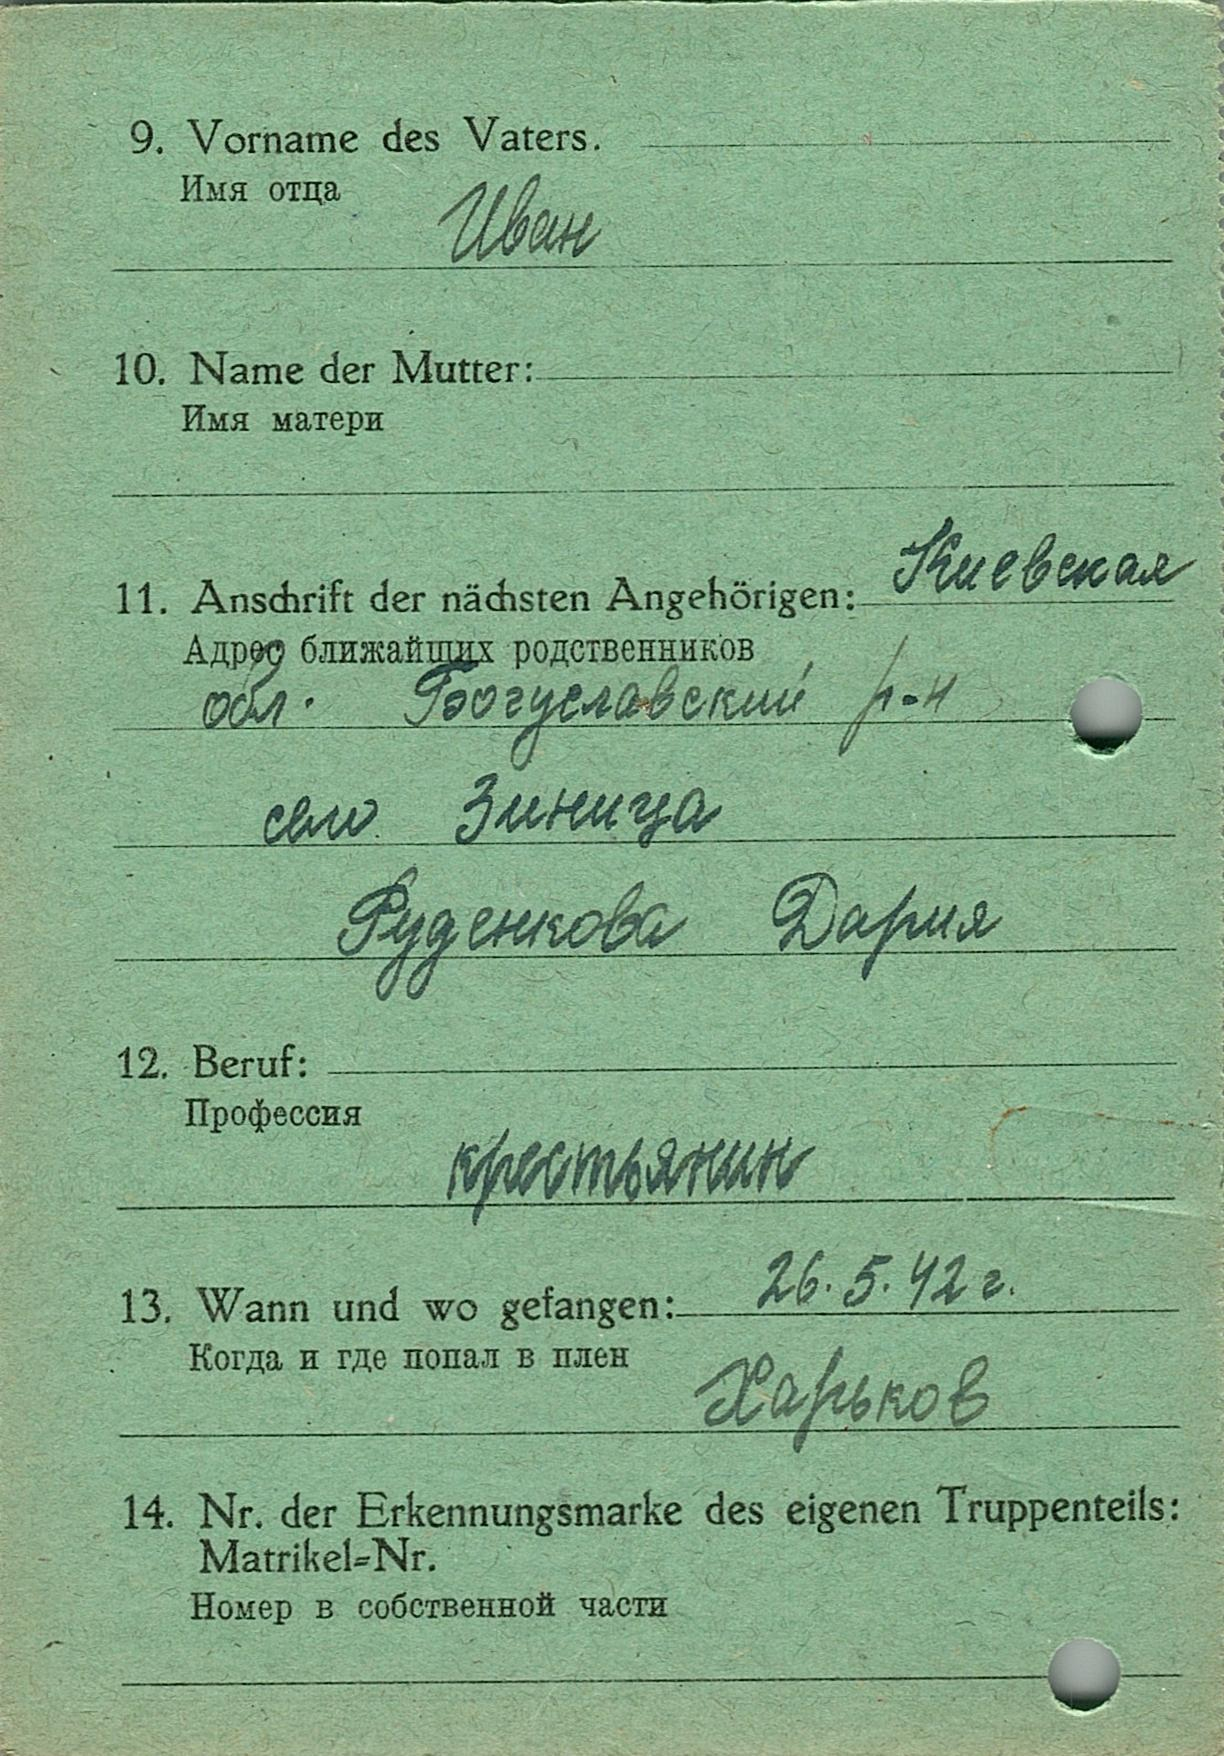 9. Vorname des Vaters.
Имя отца
Иван
10. Name der Mutter:
Имя матери
11. Anschrift der nächsten Angehörigen: Киевская
Адрес ближайщих родственников
обл. Богуславский р-н
село Зиница
Руденкова Дария
12. Beruf:
Профессия
крестьянин
13. Wann und wo gefangen: 26.5.42 г.
Когда и где попал в плен
Харьков
14. Nr. der Erkennungsmarke des eigenen Truppenteils:
Matrikel=Nr.
Номер в собственной части